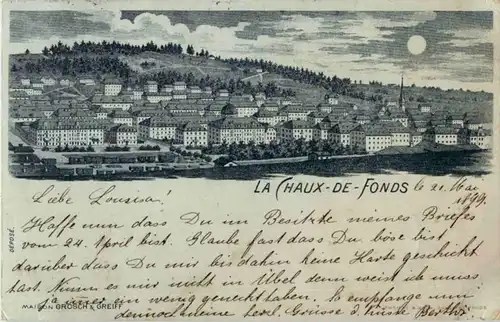 LA CHAUX-DE-FONDS le 21. Mai 1899.
Liebe Louisa!
Hoffe nun dass Du im Besitzte meines Briefes
vom 24. April bist. Glaube fast dass Du böse bist
darüber dass Du mir bis dahin keine Karte geschickt
hast. Nimm es mir nicht in Übel denn weist ich muss
Dich ein wenig geneckt haben. So empfange nun
dennoch meine Grüsse & Küsse Bertha
DÉPOSÉ.
MAISON GROSCH & GREIFF